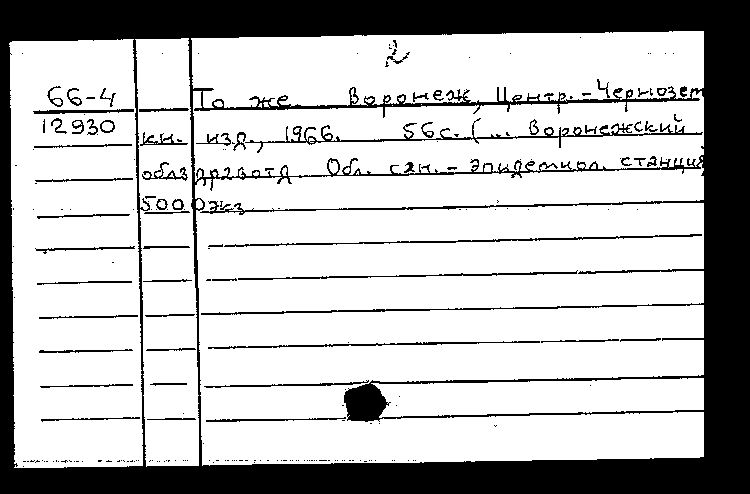 2
66-4 То же. Воронеж, Центр.-Чернозем
12930 кн. изд., 1966. 56 с. (... Воронежский
облздравотд Обл. сан.-эпидемиол. станция)
5000 экз